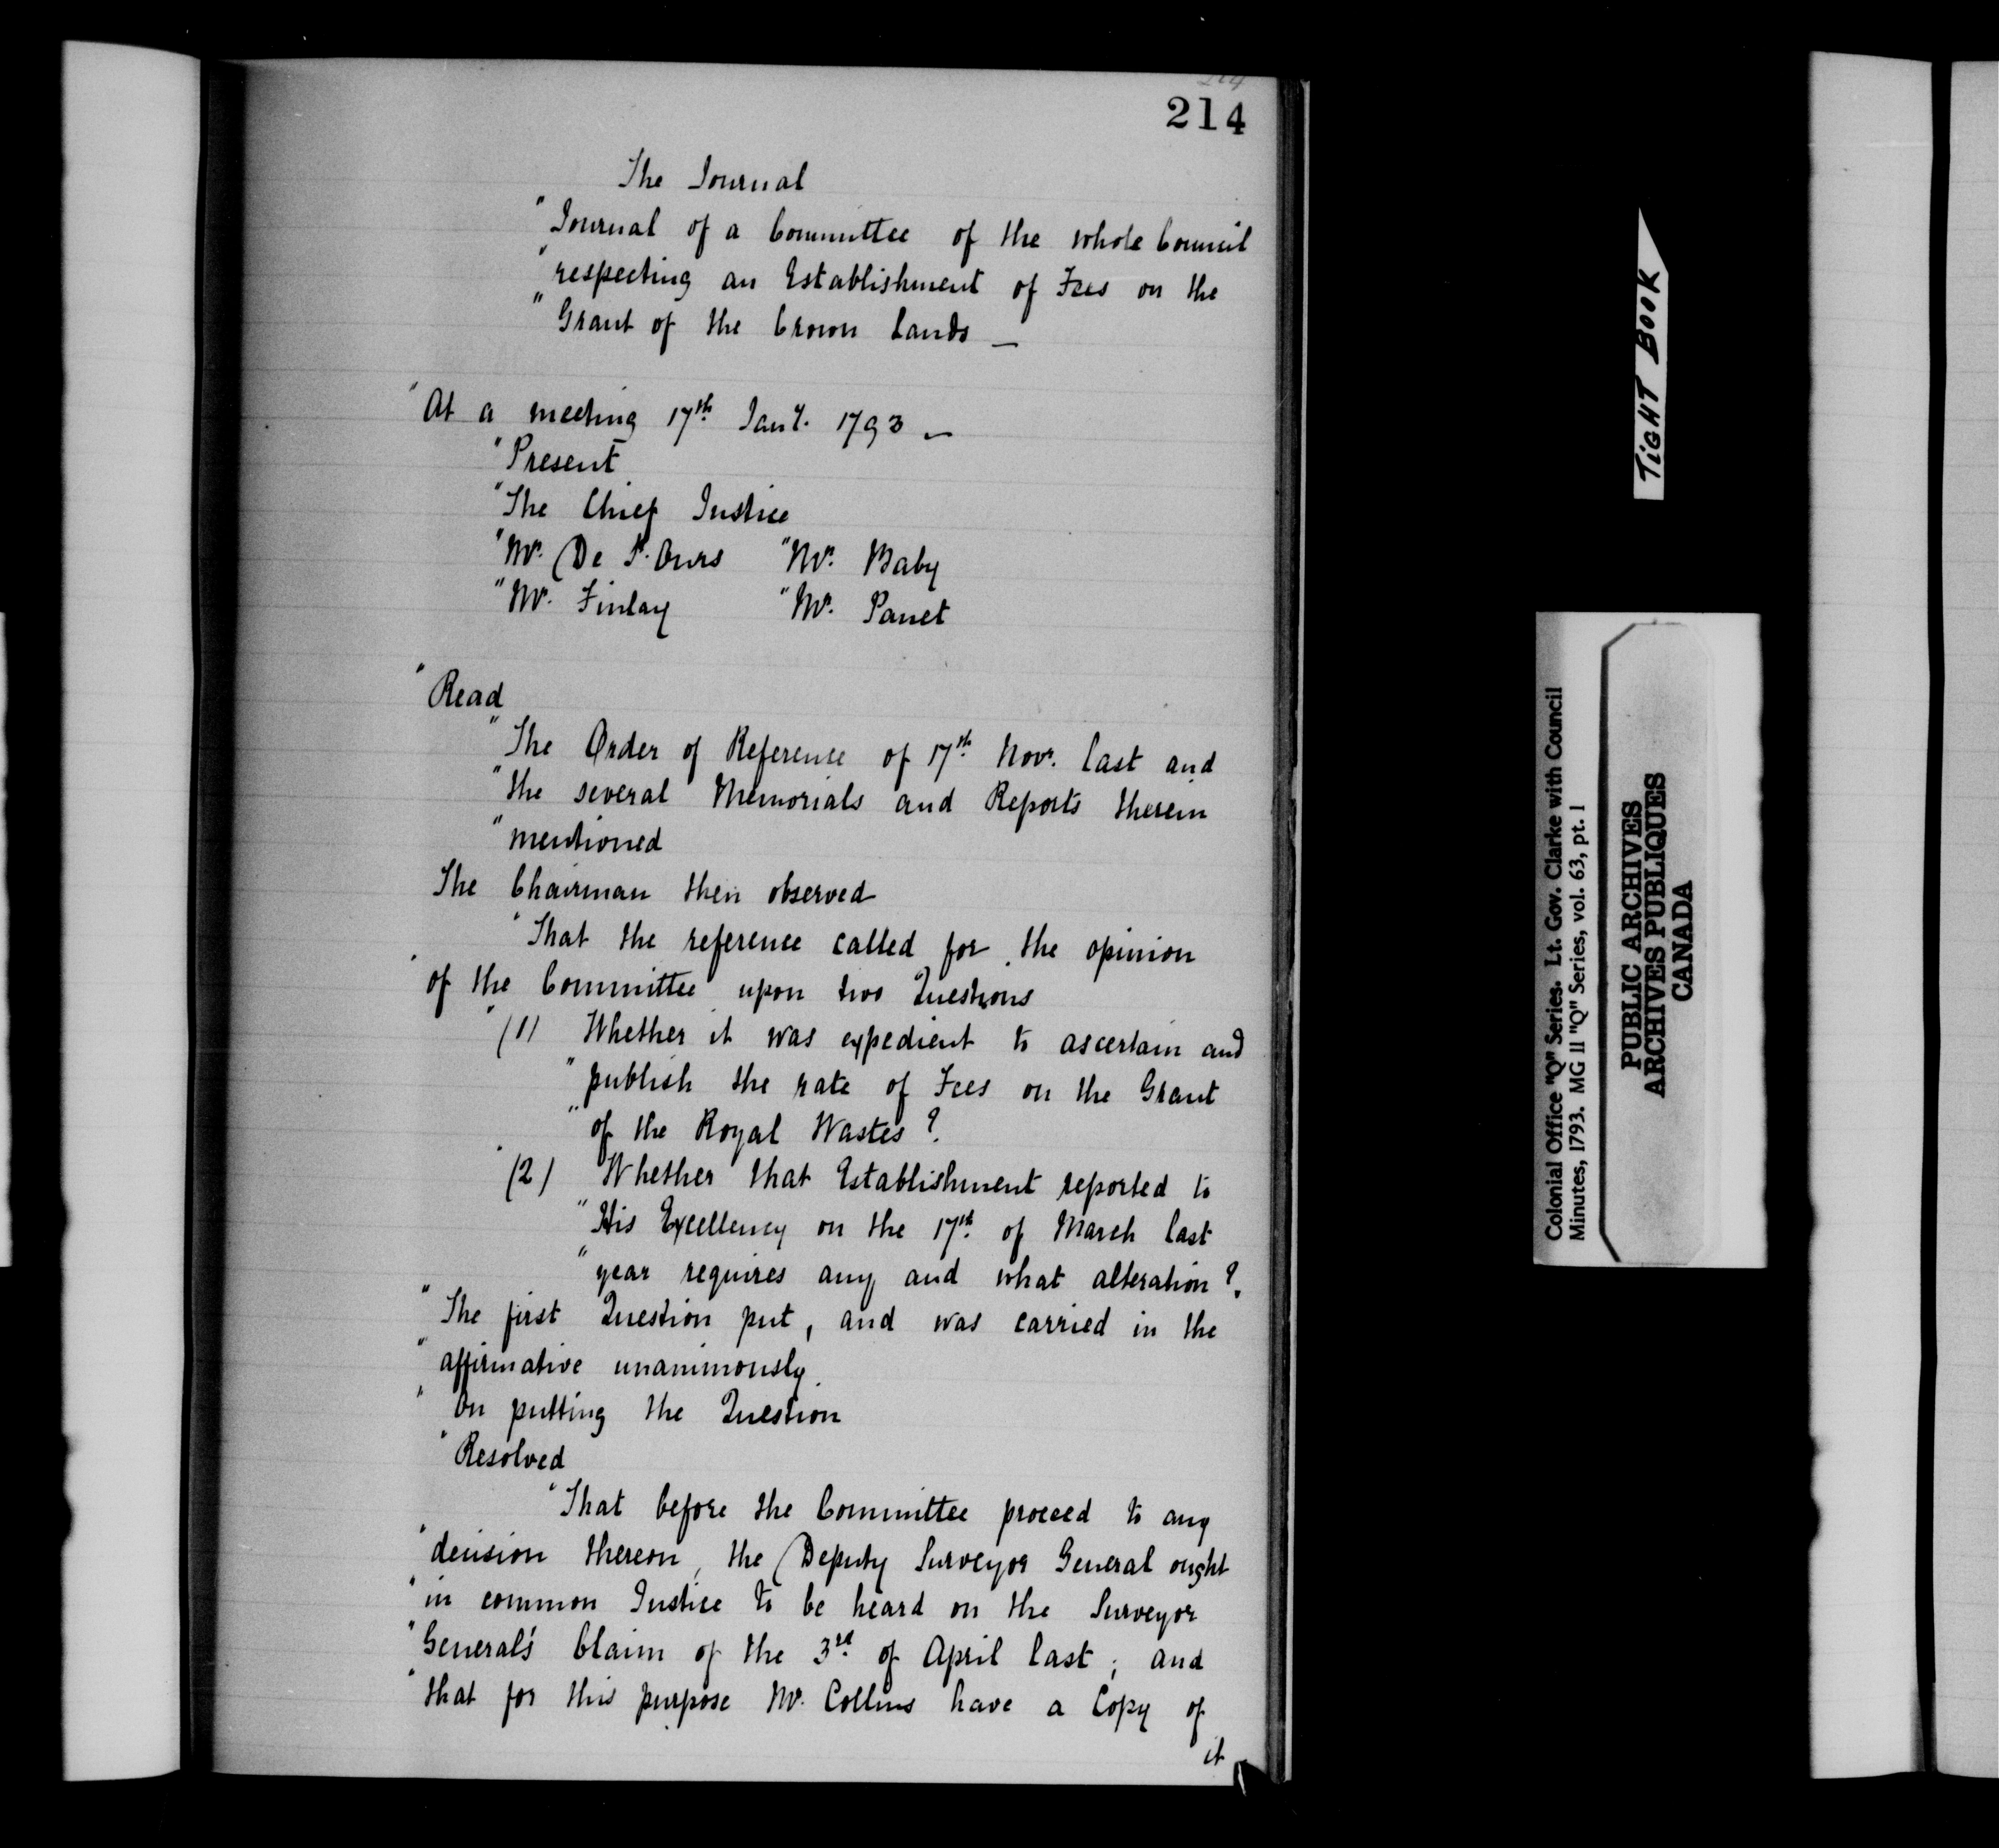 214
The Journal
"Journal of a Committee of the whole Council
"respecting an Establishment of Fees on the
"Grant of the Crown Lands _
"At a meeting 17th Jany. 1793 _
"Present
"The Chief Justice
"Mr. De St. Ours "Mr. Baby
"Mr. Finlay "Mr. Panet
"Read
"The Order of Reference of 17th Novr. last and
"the several Memorials and Reports therein
"mentioned
The Chairman then observed
"That the reference called for the opinion
"of the Committee upon two Questions
"(1) Whether it was expedient to ascertain and
"publish the rate of Fees on the Grant
"of the Royal Wastes?
"(2) Whether that Establishment reported to
"His Excellency on the 17th of March last
"year requires any and what alteration?
"The first Question put, and was carried in the
"affirmative unanimously.
"On putting the Question
"Resolved
"That before the Committee proceed to any
"decision thereon, the Deputy Surveyor General ought
"in common Justice to be heard on the Surveyor
"General's Claim of the 3rd of April last; and
"that for this purpose Mr. Collins have a Copy of
it
TIGHT BOOK
Colonial Office "Q" Series. Lt. Gov. Clarke with Council
Minutes, 1793. MG 11 "Q" Series, vol. 63, pt. 1
PUBLIC ARCHIVES
ARCHIVES PUBLIQUES
CANADA